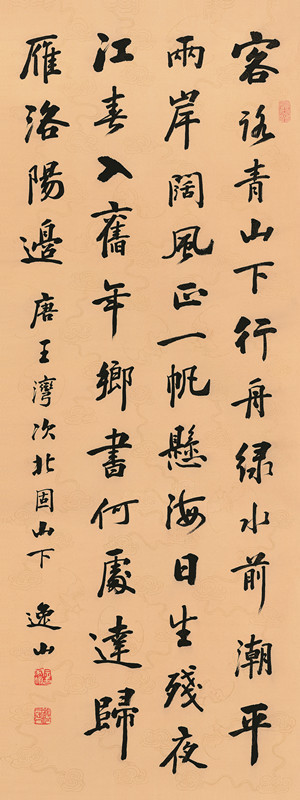 客路青山下行舟綠水前潮平
兩岸闊風正一帆懸海日生殘夜
江春入舊年鄉書何處達歸
雁洛陽邊 唐王灣次北固山下 逸山